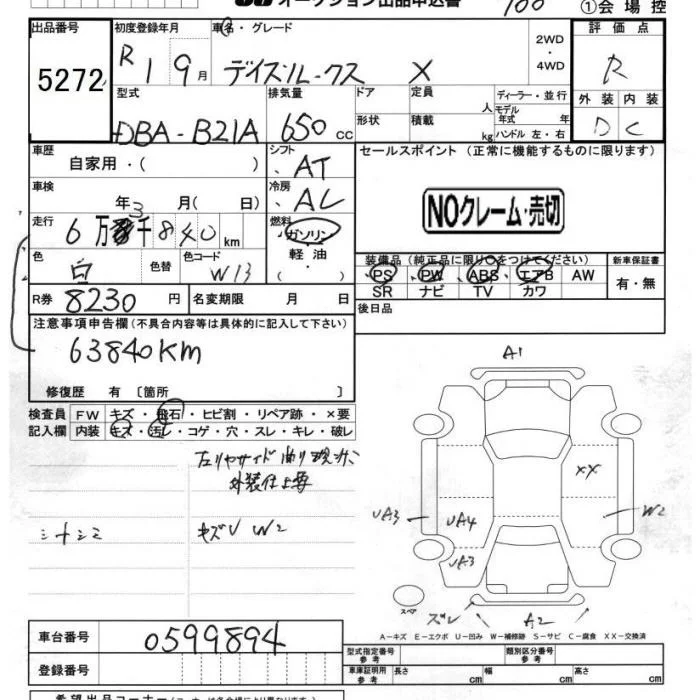 オークション出品申込書
①会場控
出品番号 初度登録年月 車名・グレード 評価点
5272
R 1 9月 デイズルークス X 2WD・4WD R
型式 排気量 ドア 定員 人 ディーラー・並行 外装 内装
DBA-B21A 650cc 形状 積載 kg モデル年式 年 D C
ハンドル 左・右
車歴 シフト セールスポイント (正常に機能するものに限ります)
自家用・( ) AT
車検 冷房
年 3月( 日) AC
NOクレーム・売切
走行 燃料
6万 千840km ガソリン
軽油
・( )
色 色替 色コード
白 W13
装備品(純正品に限り○をつけてください) 新車保証書
PS PW ABS エアB AW 有・無
SR ナビ TV カワ
R券 8230円 名変期限 月 日
後日品
注意事項申告欄(不具合内容等は具体的に記入して下さい)
63840KM
修復歴 有 〔箇所 〕
検査員 FW キズ・飛石・ヒビ割・リペア跡・×要
記入欄 内装 キズ・汚レ・コゲ・穴・スレ・キレ・破レ
左リヤサイド曲り
外装仕上要
シナシミ キズU W2
A1
XX
UA3
UA4
W2
UA3
スペア
ズレ A2
A-キズ E-エクボ U-凹み W-補修跡 S-サビ C-腐食 XX-交換済
車台番号 0599894
登録番号
型式指定番号 参考 類別区分番号 参考
車庫証明用 参考 長さ cm 幅 cm 高さ cm
希望出品コーナー